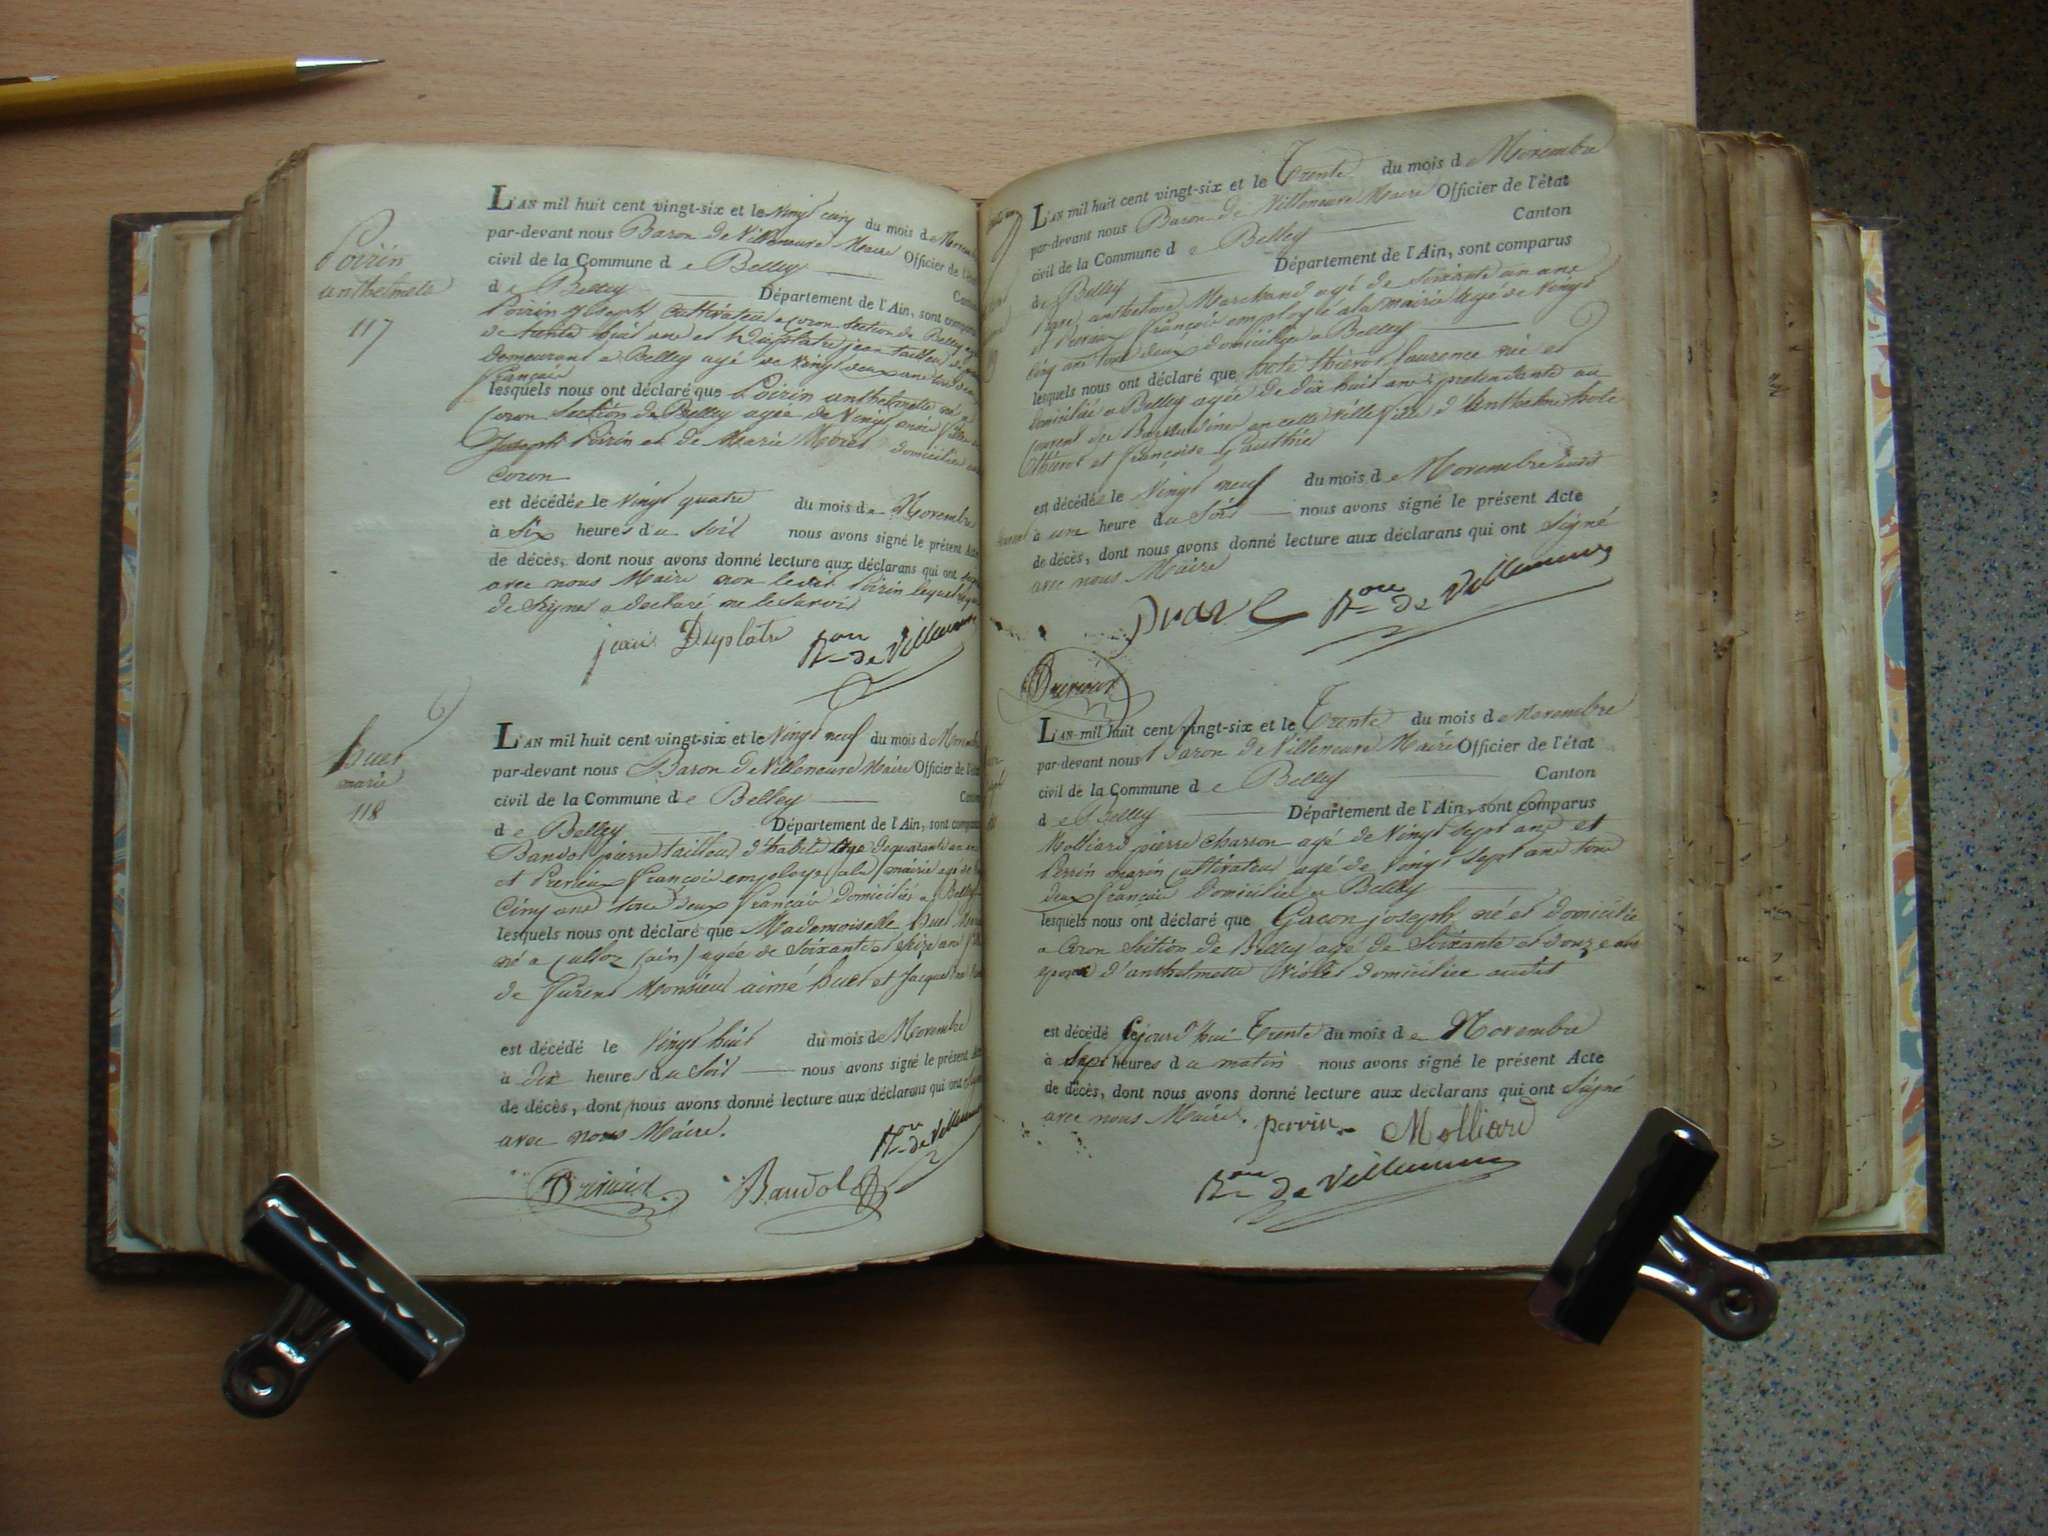 Poirin
anthelmete
117
L'AN mil huit cent vingt-six et le Vingt cinq du mois de
par-devant nous Baron de Villeneuve Maire Officier de
civil de la Commune de Belley
de Belley Département de l'Ain, sont
Poirin Joseph Cultivateur a Coron Section de Belley
de trente huit ans et Duplatre jean tailleur
Demeurant a Belley agé de Vingt deux ans tous
français
lesquels nous ont déclaré que Poirin anthelmete né a
Coron Section de Belley agée de Vingt fille
Joseph Poirin et de Marie Moret domicilié
Coron
est décédée le Vingt quatre du mois de Novembre
à Six heures du Soir nous avons signé le présent Acte
de décès, dont nous avons donné lecture aux déclarans qui ont
avec nous Maire non ledit Poirin lequel
de Signer a déclaré ne le Savoir
jean Duplatre Bon de Villeneuve
huet
marie
118
L'AN mil huit cent vingt-six et le Vingt neuf du mois de
par-devant nous Baron de Villeneuve Maire Officier de
civil de la Commune de Belley
de Belley Département de l'Ain, sont
Baudot pierre tailleur d'habits agé de quarante
et françois employé (a la) mairie agé de
Cinq ans tous deux français domiciliés a Belley
lesquels nous ont déclaré que Mademoiselle huet
né a Culloz (ain) agée de Soixante
de Monsieur aimé huet et
est décédé le Vingt huit du mois de Novembre
à dix heures du Soir nous avons signé le présent
de décès, dont nous avons donné lecture aux déclarans qui ont
avec nous Maire. Bon de Villeneuve
Baudot
L'AN mil huit cent vingt-six et le Trente du mois de Novembre
par-devant nous Baron de Villeneuve Maire Officier de l'état
civil de la Commune de Belley Canton
de Belley Département de l'Ain, sont comparus
anthelme Marchand agé de Soixante un ans
et françois employé a la mairie agé de Vingt
Cinq ans tous deux domiciliés a Belley
lesquels nous ont déclaré que hote thierot laurence née et
domiciliée a Belley agée de dix huit ans pretendante au
couvent des en cette Ville fille d'Anthelme hote
thierot et françoise Gauthier
est décédée le Vingt neuf du mois de Novembre audit
à une heure du Soir nous avons signé le présent Acte
de décès, dont nous avons donné lecture aux déclarans qui ont Signé
avec nous Maire
Bon de Villeneuve
L'AN mil huit cent vingt-six et le Trente du mois de Novembre
par-devant nous Baron de Villeneuve Maire Officier de l'état
civil de la Commune de Belley Canton
de Belley Département de l'Ain, sont comparus
Molliard pierre Charron agé de Vingt Sept ans et
Perrin marin cultivateur agé de Vingt Sept ans tous
deux français domiciliés a Belley
lesquels nous ont déclaré que Gacon joseph né et domicilié
a Coron Section de Belley agé de Soixante et douze ans
epoux d'anthelmette Violet domiciliée audit
est décédé Cejourd'hui Trente du mois de Novembre
à Sept heures du matin nous avons signé le présent Acte
de décès, dont nous avons donné lecture aux déclarans qui ont Signé
avec nous Maire. perrin Molliard
Bon de Villeneuve